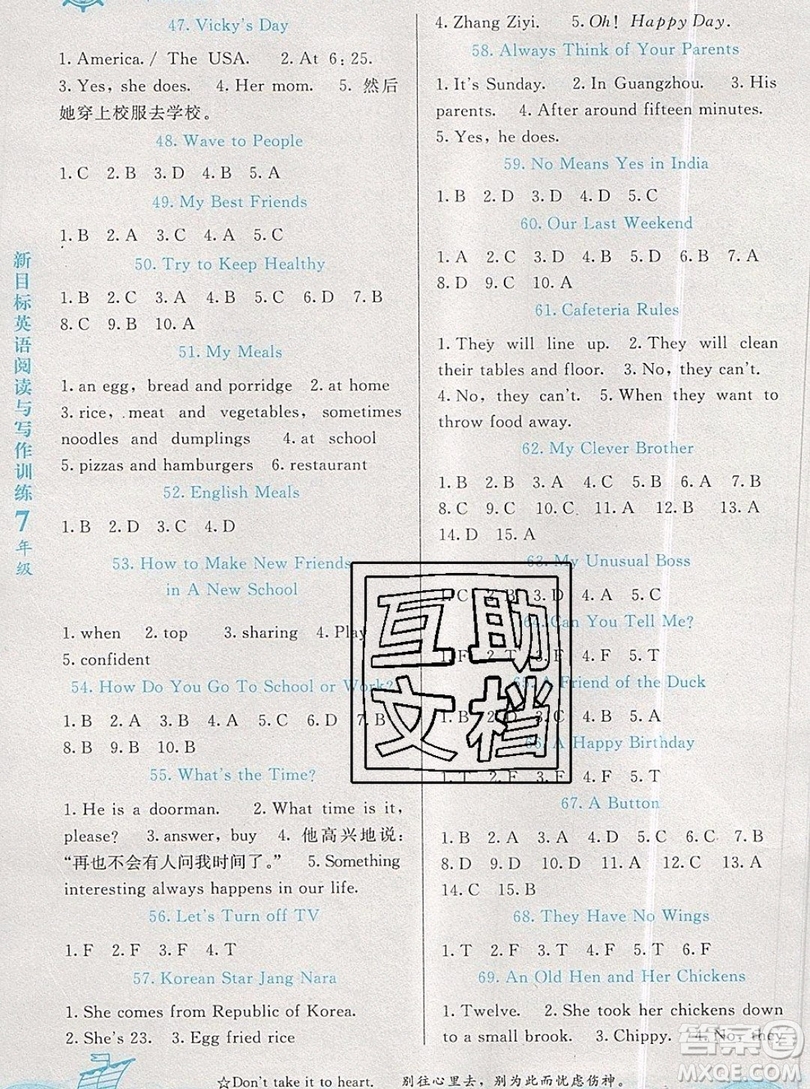 新目标英语阅读与写作训练7年级
47. Vicky's Day
1. America./ The USA. 2. At 6:25.
3. Yes, she does. 4. Her mom. 5. 然后
她穿上校服去学校。
48. Wave to People
1. C 2. B 3. D 4. B 5. A
49. My Best Friends
1. B 2. A 3. C 4. A 5. C
50. Try to Keep Healthy
1. B 2. C 3. A 4. B 5. C 6. D 7. B
8. C 9. B 10. A
51. My Meals
1. an egg, bread and porridge 2. at home
3. rice, meat and vegetables, sometimes
noodles and dumplings 4. at school
5. pizzas and hamburgers 6. restaurant
52. English Meals
1. B 2. D 3. C 4. D
53. How to Make New Friends
in A New School
1. when 2. top 3. sharing 4. Play
5. confident
54. How Do You Go To School or Work?
1. B 2. B 3. D 4. C 5. A 6. D 7. B
8. B 9. B 10. B
55. What's the Time?
1. He is a doorman. 2. What time is it,
please? 3. answer, buy 4. 他高兴地说:
“再也不会有人问我时间了。” 5. Something
interesting always happens in our life.
56. Let's Turn off TV
1. F 2. F 3. F 4. T
57. Korean Star Jang Nara
1. She comes from Republic of Korea.
2. She's 23. 3. Egg fried rice
4. Zhang Ziyi. 5. Oh! Happy Day.
58. Always Think of Your Parents
1. It's Sunday. 2. In Guangzhou. 3. His
parents. 4. After around fifteen minutes.
5. Yes, he does.
59. No Means Yes in India
1. B 2. D 3. D 4. D 5. C
60. Our Last Weekend
1. A 2. C 3. A 4. C 5. B 6. A 7. B
8. D 9. C 10. A
61. Cafeteria Rules
1. They will line up. 2. They will clean
their tables and floor. 3. No, they can't.
4. No, they can't. 5. They want to
throw food away.
62. My Clever Brother
1. B 2. C 3. D 4. D 5. B 6. A 7. B
8. C 9. C 10. A 11. A 12. A 13. B
14. D 15. A
63. My Unusual Boss
1. C 2. B 3. D 4. B 5. C
64. Can You Tell Me?
F 4. F 5. T
A Friend of the Duck
1. B 2. D 3. C 4. B 5. A
66. A Happy Birthday
1. T 2. F 3. F 4. F 5. T
67. A Button
1. B 2. B 3. A 4. D 5. C 6. C 7. B
8. D 9. D 10. D 11. A 12. A 13. A
14. C 15. B
68. They Have No Wings
1. T 2. F 3. F 4. T 5. T 6. F
69. An Old Hen and Her Chickens
1. Twelve. 2. She took her chickens down
to a small brook. 3. Chippy. 4. No, they
☆Don't take it to heart. 别往心里去,别为此而忧虑伤神。
互助
文档
答案圈
MXQE.COM